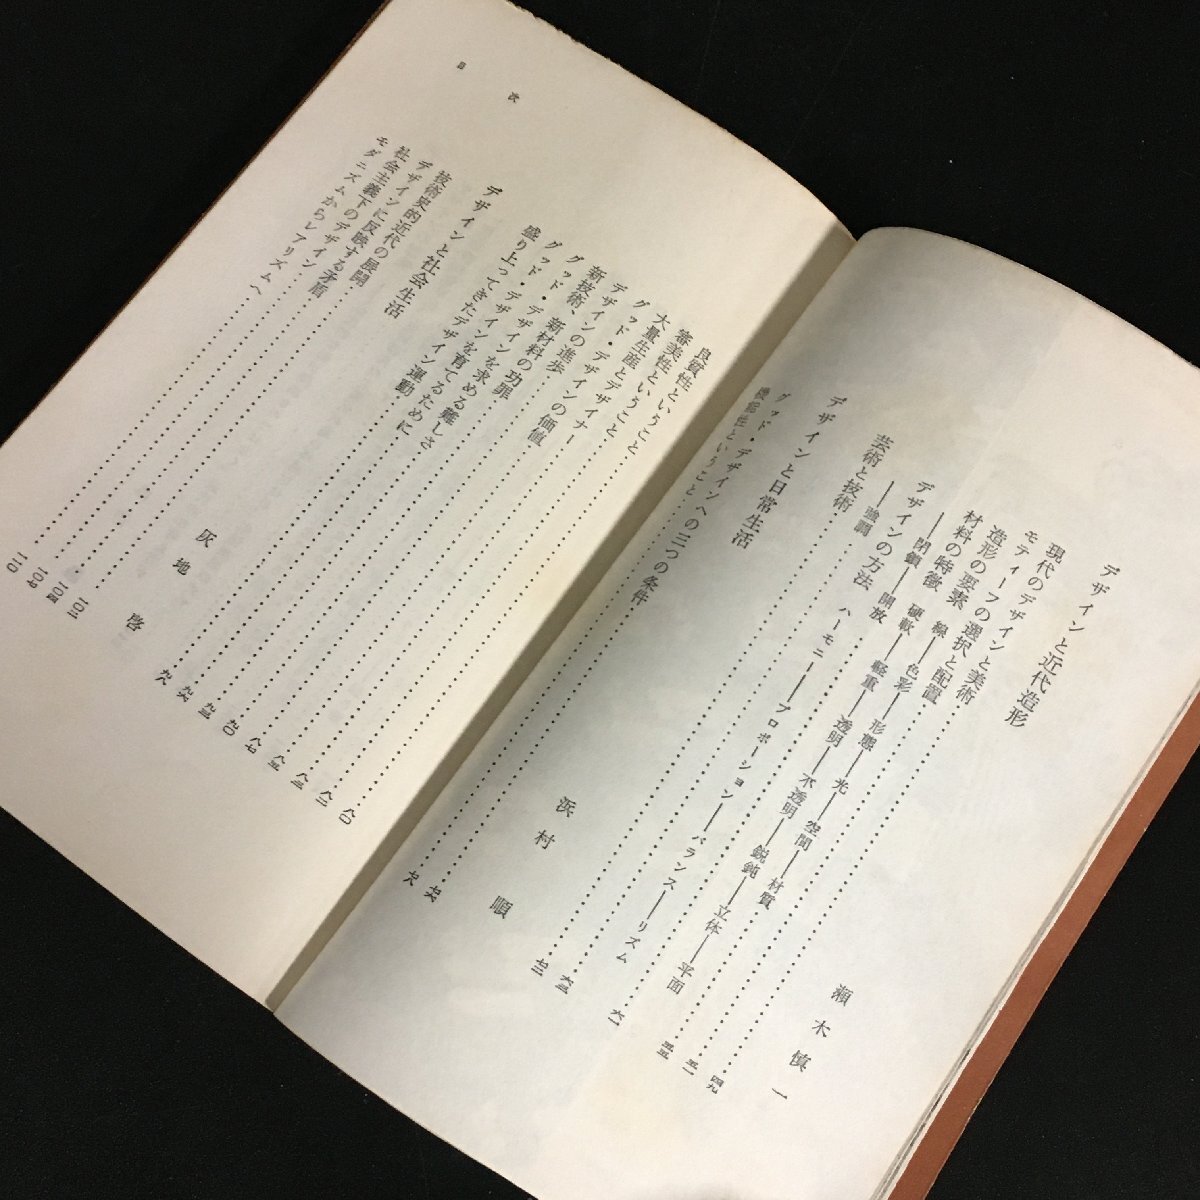 デザインと近代造形 瀬木慎一
現代のデザインと美術 四九
モティーフの選択と配置 五一
造形の要素 線──色彩──形態──光──空間──材質 五五
材料の特徴 硬軟──軽重──透明──不透明──鋭鈍──立体──平面
──閉鎖──開放 六一
デザインの方法 ハーモニー──プロポーション──バランス──リズム
──強調 六三
芸術と技術 七二
デザインと日常生活 浜村順
グッド・デザインへの三つの条件 七六
機能性ということ 七八
目次
良質性ということ 八〇
審美性ということ 八二
大量生産とデザイナー
グッド・デザインの価値
デザインの進歩
新技術、新材料の功罪
グッド・デザインを求める難しさ
グッド・デザインを育てるために
盛り上ってきたデザイン運動
デザインと社会生活 灰地啓
技術史的近代の展開
デザインに反映する矛盾
社会主義下のデザイン
モダニズムからレアリズムへ 一一〇